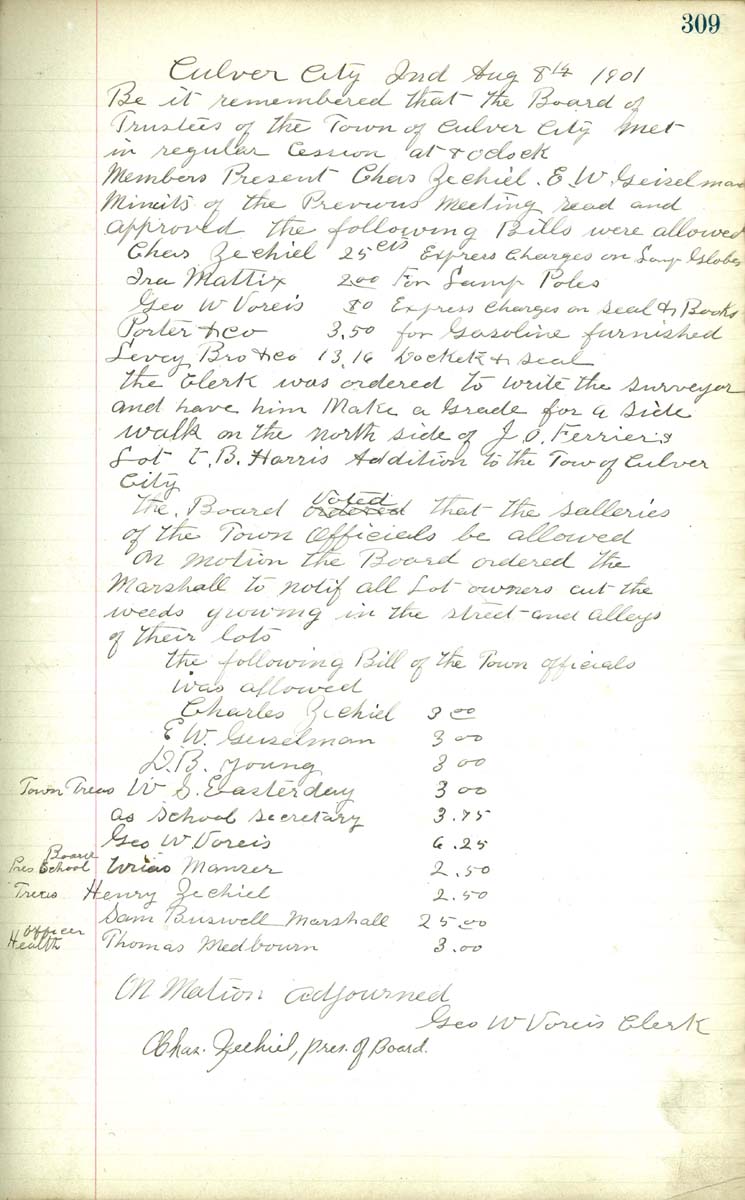 309
Culver City Ind Aug 8th 1901
Be it remembered that the Board of
Trustees of the Town of Culver City met
in regular Cession at 8 oclock
Members Present Chas Zechiel. E. W. Geiselman
Mineits of the Previous Meeting read and
approved the following Bills were allowed
Chas Zechiel 25cts Express Charges on Lamp Globes
Ira Mattix 2.00 For Lamp Poles
Geo W Voreis 80 Express Charges on seal & Books
Porter & Co 3,50 for Gasoline furnished
Levey Bro & co 13,16 Dockett & seal
the Clerk was ordered to write the surveyor
and have him Make a Grade for a side
walk on the north side of J. O. Ferriers
Lot B. Harris Addition to the Tow of Culver
City
the Board ordered Voted that the salleries
of the Town Officials be allowed
On motion the Board ordered the
Marshall to notif all Lot owners cut the
weeds growing in the street and alleys
of their lots
the following Bill of the Town officials
was allowed
Charles Zechiel 3 00
E W. Geiselman 3 00
D. B. Young 3 00
Town Treas W S. Easterday 3 00
as School Secretary 3.75
Geo W Voreis 6.25
Pres School Board Urias Manser 2.50
Treas Henry Zechiel 2.50
Sam Buswell Marshall 25.00
Health officer Thomas Medbourn 3.00
On Motion adjourned
Geo W Voreis Clerk
Chas. Zechiel, pres. of Board.